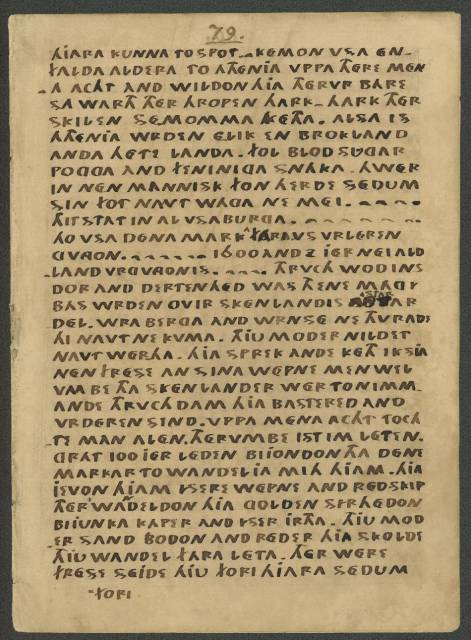 79.
HIARA KUNNA TO SPOT. KEMON VSA EN-
FALDA ALDERA TO ATHENIA VPPA THERE MEN
A ACHT AND WILDON HIA THERVR BARE
SA WARTH THER HROPEN HARK. HARK THER
SKIL EN SEMOMMA KETHA. ALSA IS
ATHENIA WRDEN ELIK EN BROKLAND
ANDA HETE LANDA. FOL BLODSUGAR
POGGA AND FENINIGA SNAKA. HWER
IN NEN MANNISK FON HERDE SEDUM
SIN FOT NAVT WAGA NE MEI.
THIT STAT IN AL VSA BURGA.
HO VSA DENAMARKA FARA VS VRLEREN
GVGON. 1600 AND 2 IER NEI ALD
LAND VRGVGON IS. THRUCH WODINS
DOR AND DERTENHED WAS THENE MAGY
BAS WRDEN OVIR SKENLANDIS ASTAR
DEL. WRA BERGA AND WRNSE NE THVRADE
HI NAVT NE KVMA. THIU MODER NILDET
NAVT WERHA. HIA SPREK ANDE KETH IK SIA
NEN FRESE AN SINA WEPNE MEN WEL
VMBE THA SKENLANDER WER TO NIMM
ANDE THRVCH DAM HIA BASTERED AND
VRDEREN SIND. VPPA MENA ACHT TOCH
TE MAN ALEN. THERVMBE IST IM LETEN.
GRAT 100 IER LEDEN BIIONDON THA DENE
MARKAR TO WANDELIA MITH HIAM. HIA
IEVON HIAM YSERE WEPNE AND REDSKIP
THER WANDELDON HIA GOLDEN SYRHEDON
BIIUNKA KAPER AND YSER IRTHA. THIU MOD
ER SAND BODON AND REDER HIA SKOLDE
THIU WANDEL FARA LETA. THER WERE
FRESE SEIDE HIU FORI HIARA SEDUM
FORI